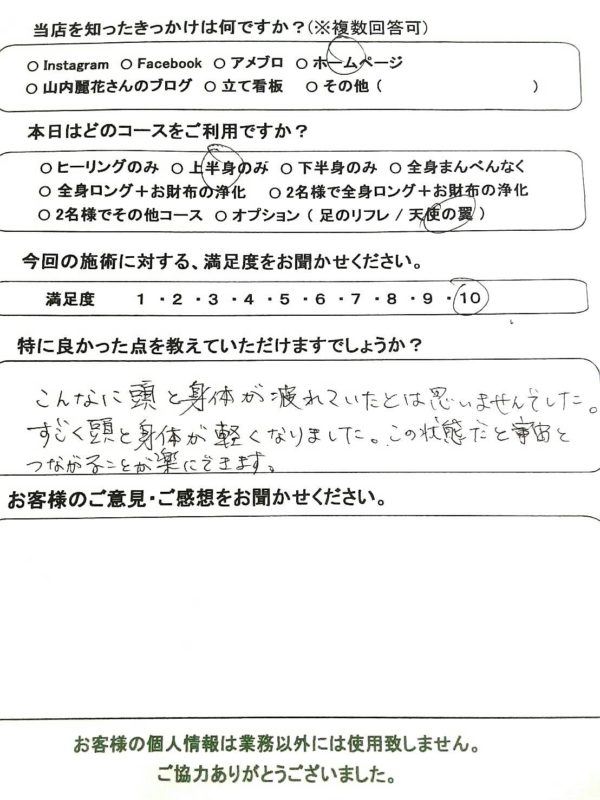 当店を知ったきっかけは何ですか?(※複数回答可)
○ Instagram ○ Facebook ○ アメブロ ○ ホームページ
○ 山内麗花さんのブログ ○ 立て看板 ○ その他 ( )
本日はどのコースをご利用ですか?
○ ヒーリングのみ ○ 上半身のみ ○ 下半身のみ ○ 全身まんべんなく
○ 全身ロング＋お財布の浄化 ○ 2名様で全身ロング＋お財布の浄化
○ 2名様でその他コース ○ オプション ( 足のリフレ / 天使の翼 )
今回の施術に対する、満足度をお聞かせください。
満足度 1 ・ 2 ・ 3 ・ 4 ・ 5 ・ 6 ・ 7 ・ 8 ・ 9 ・ 10
特に良かった点を教えていただけますでしょうか?
こんなに頭と身体が疲れていたとは思いませんでした。
すごく頭と身体が軽くなりました。この状態だと宇宙と
つながることが楽にできます。
お客様のご意見・ご感想をお聞かせください。
お客様の個人情報は業務以外には使用致しません。
ご協力ありがとうございました。